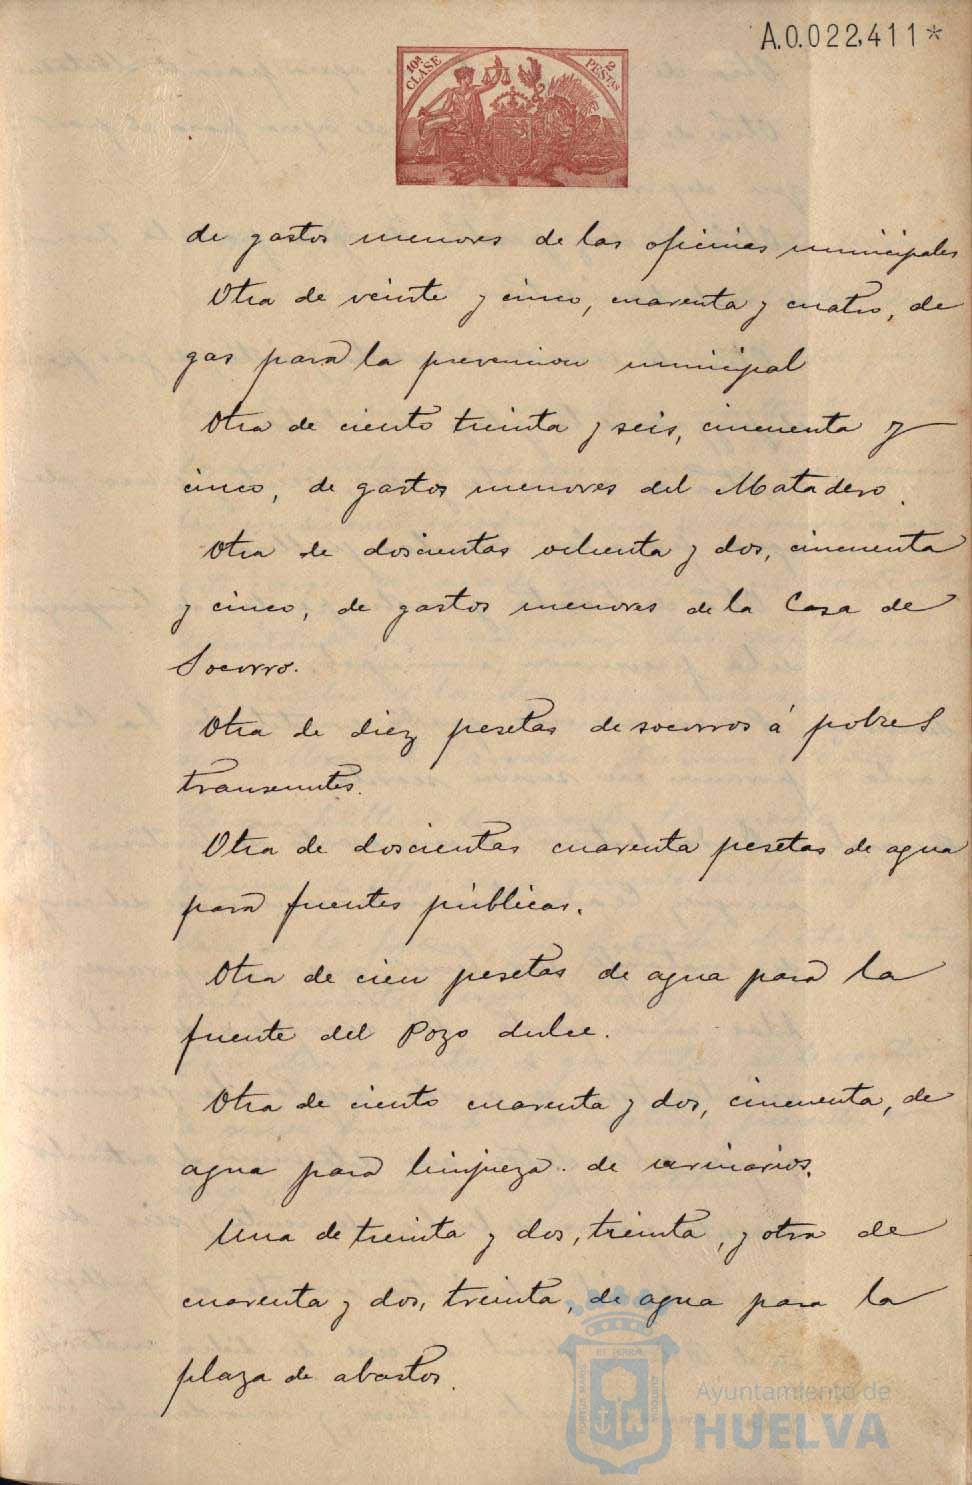 A.0.022,411*
10ª CLASE
2 PESETAS
de gastos menores de las oficinas municipales
Otra de veinte y cinco, cuarenta y cuatro, de
gas para la prevencion municipal
Otra de ciento treinta y seis, cincuenta y
cinco, de gastos menores del Matadero.
Otra de doscientas ochenta y dos, cincuenta
y cinco, de gastos menores de la Casa de
Socorro.
Otra de diez pesetas de socorros á pobres
transeuntes.
Otra de doscientas cuarenta pesetas de agua
para fuentes públicas.
Otra de cien pesetas de agua para la
fuente del Pozo dulce.
Otra de ciento cuarenta y dos, cincuenta, de
agua para limpieza de urinarios.
Una de treinta y dos, treinta, y otra de
cuarenta y dos, treinta, de agua para la
plaza de abastos.
Ayuntamiento de
HUELVA